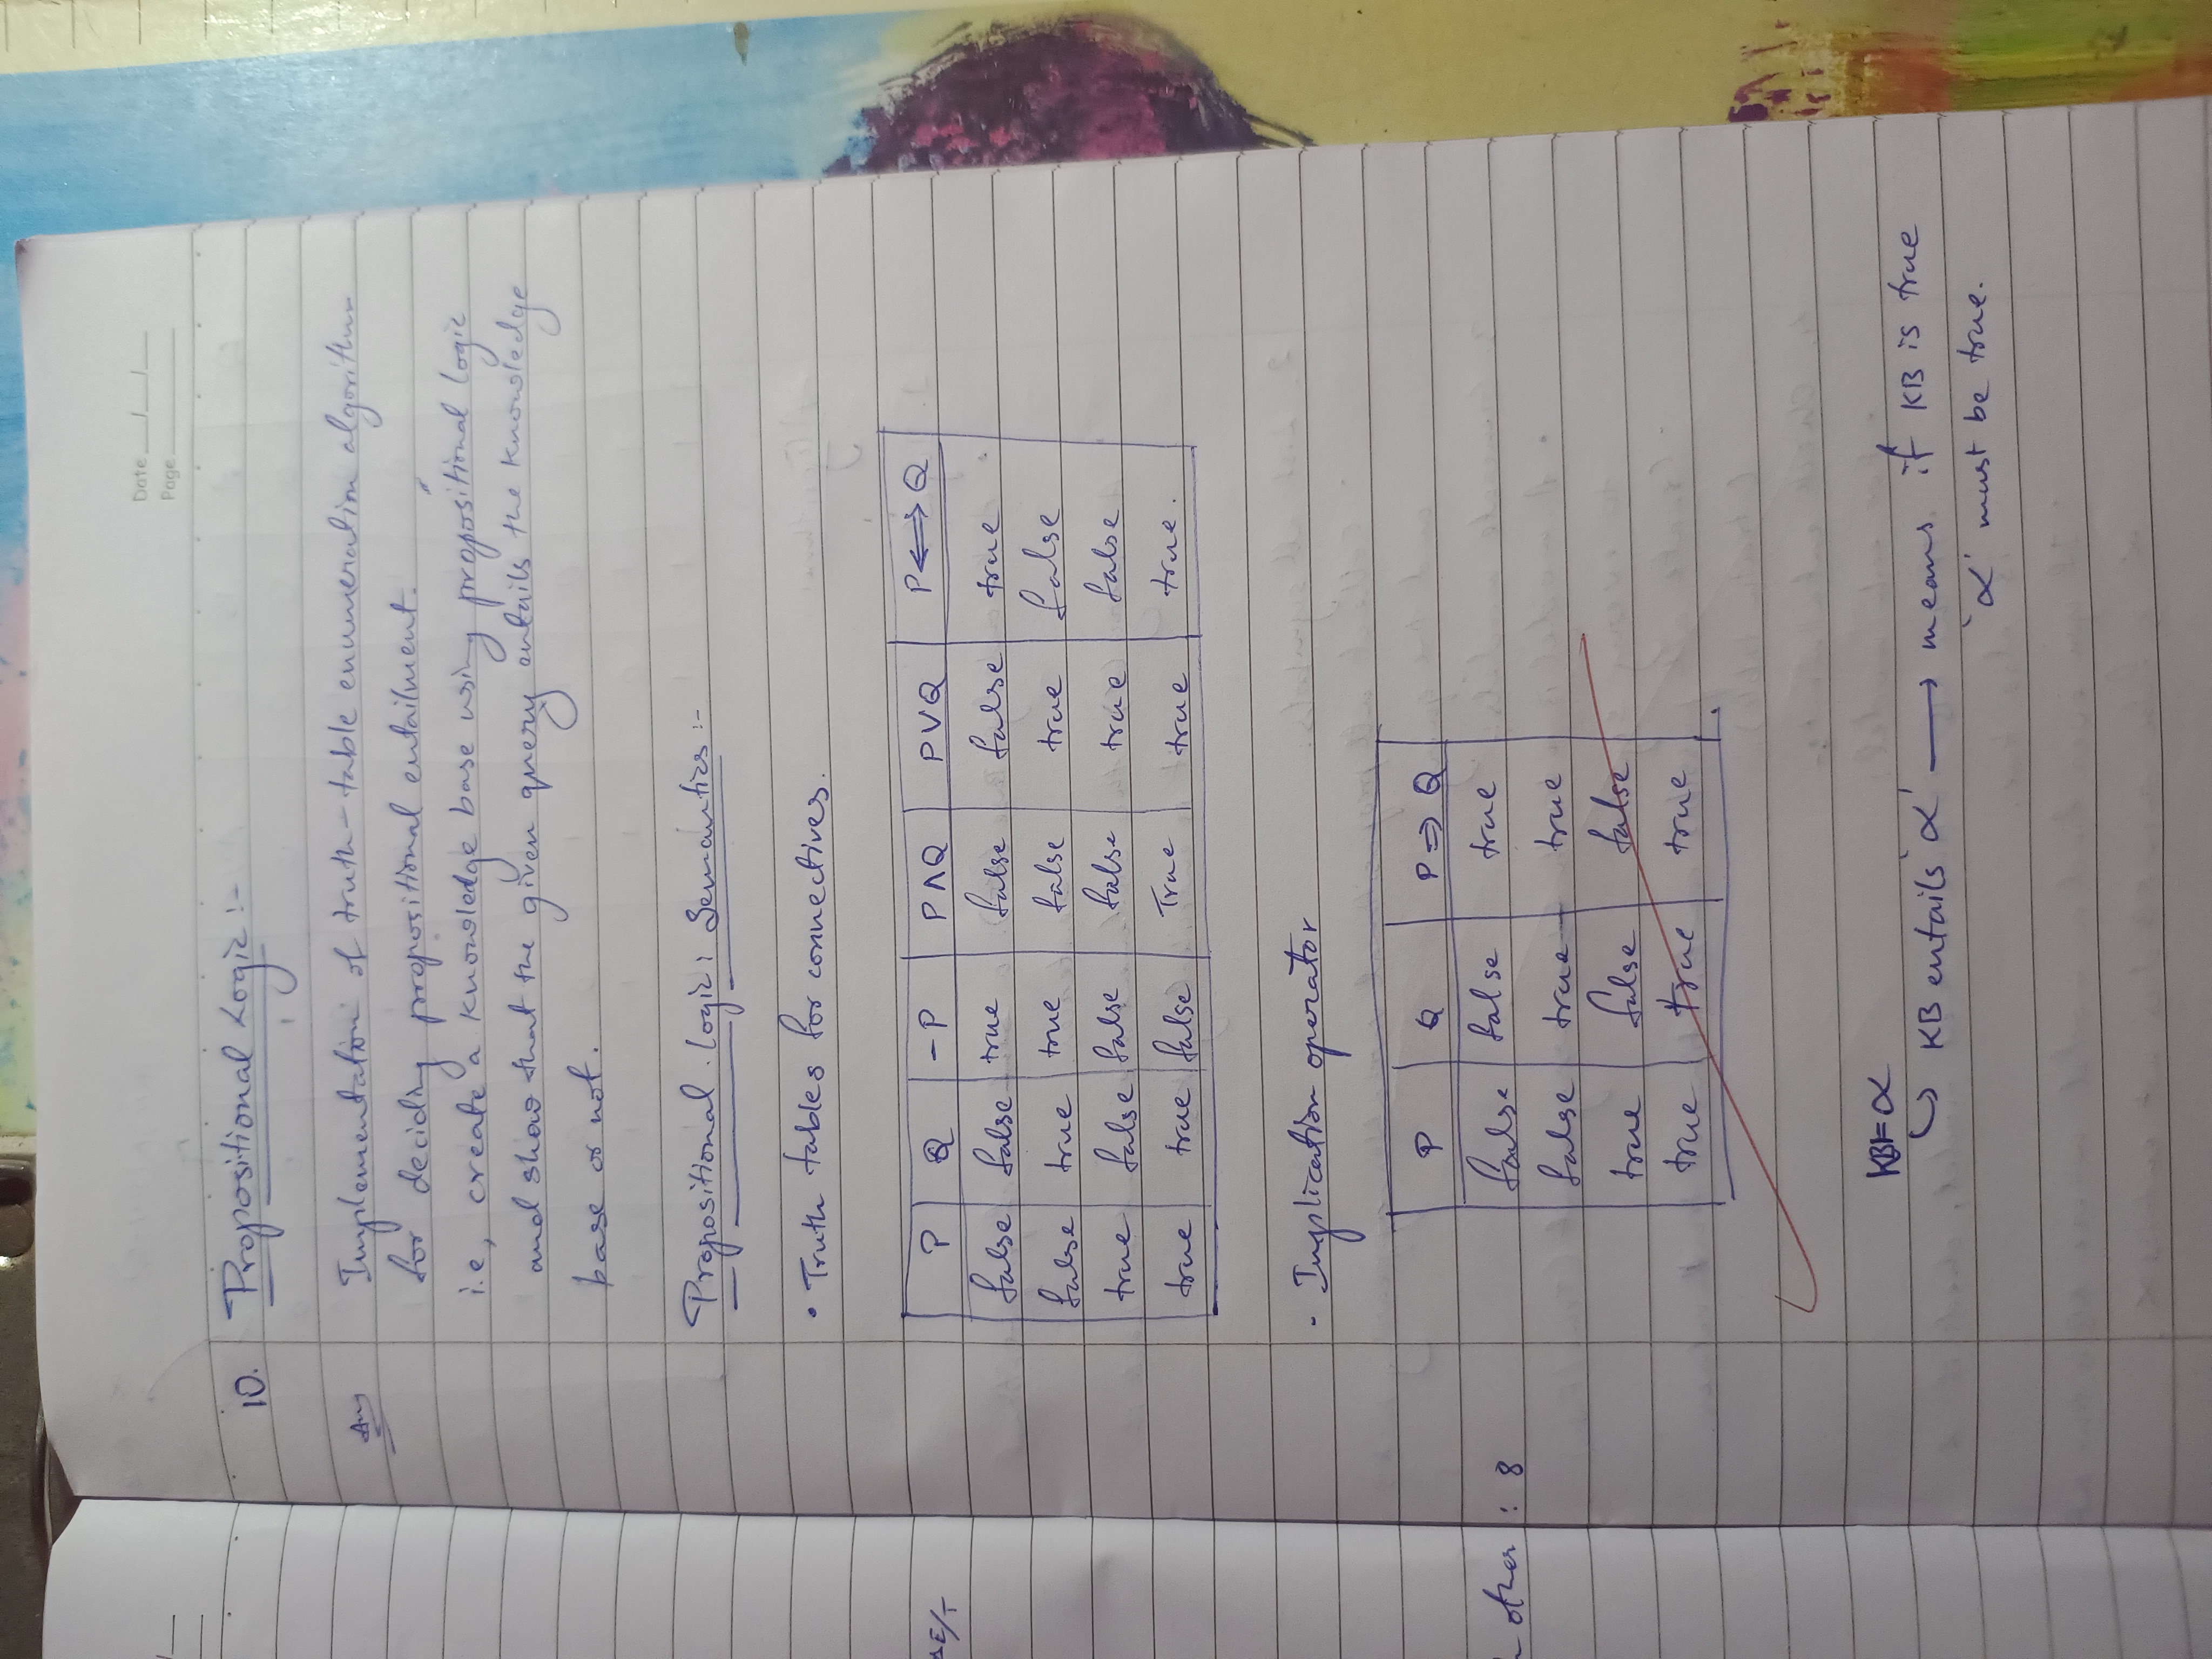 Date __/__/__
Page
10. Propositional Logic :-
Ans Implementation of truth-table enumeration algorithm
for deciding propositional entailment.
i.e, create a knowledge base using propositional logic
and show that the given query entails the knowledge
base or not.
Propositional Logic: Semantics :-
• Truth tables for connectives.
P Q -P P∧Q P∨Q P⟺Q
false false true false false true
false true true false true false
true false false false true false
true true false True true true.
- Implication operator
P Q P⇒Q
false false true
false true true
true false false
true true true
KB⊨α
↳ KB entails 'α' ⟶ means if KB is true
'α' must be true.
ΔE/T
other : 8